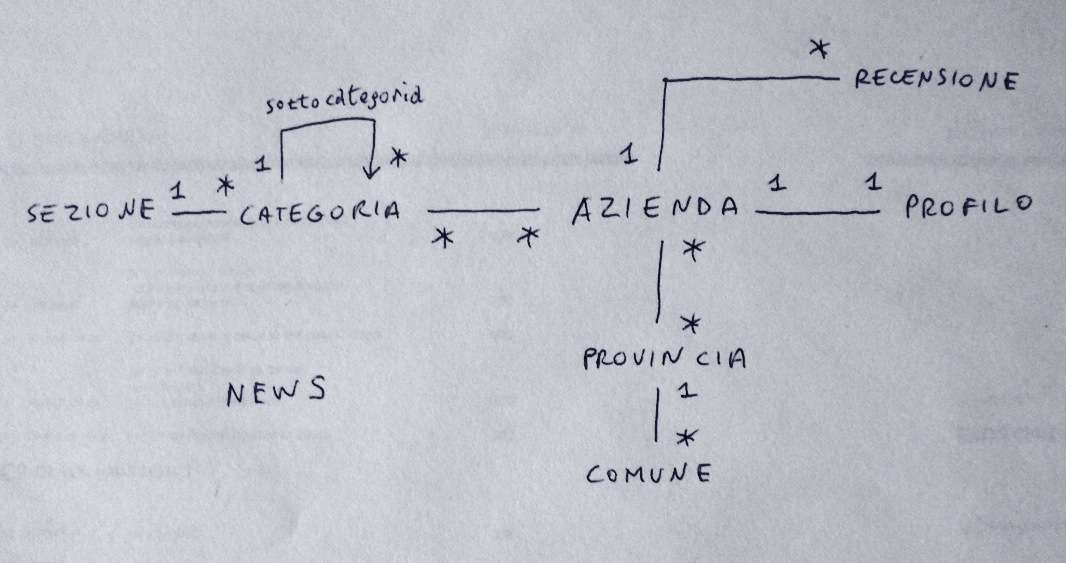 *
RECENSIONE
sottocategoria
1 * 1
1 * 1 1
SEZIONE CATEGORIA AZIENDA PROFILO
* * *
*
PROVINCIA
NEWS 1
*
COMUNE